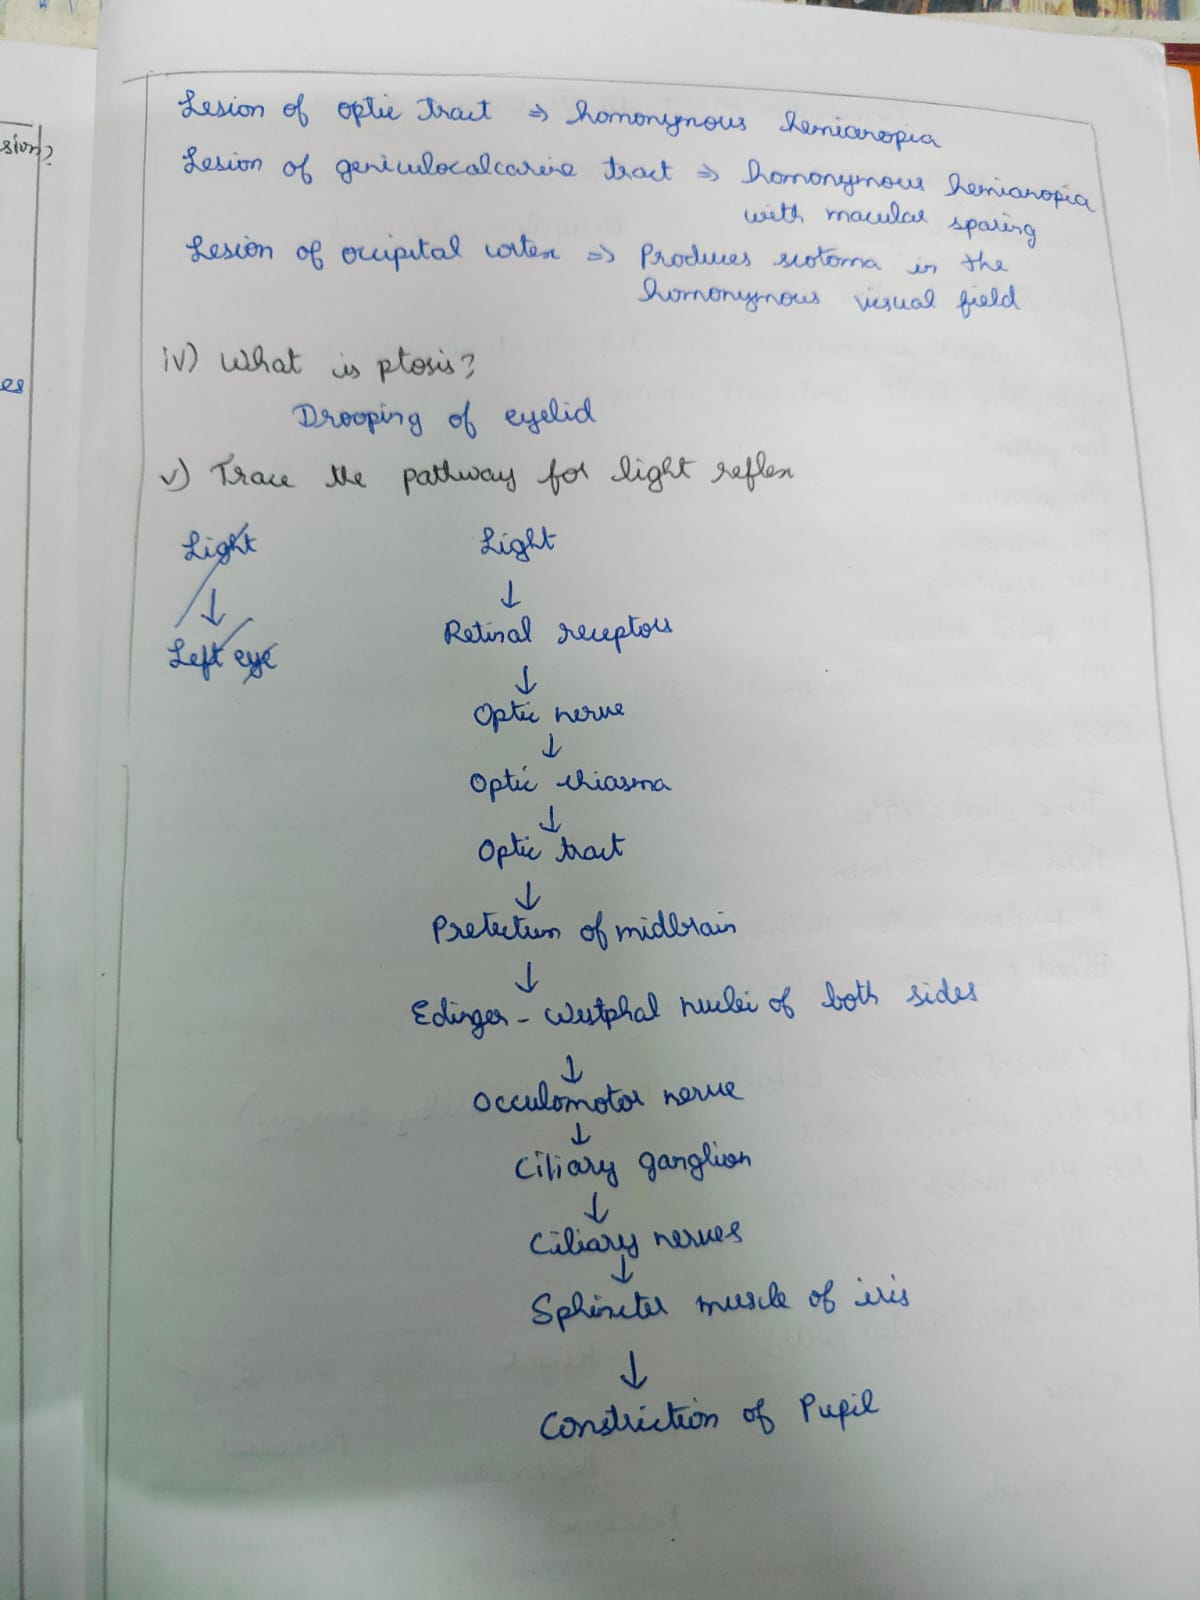 sion?
es
Lesion of optic tract ⇒ homonymous hemianopia
Lesion of geniculocalcarine tract ⇒ homonymous hemianopia
with macular sparing
Lesion of occipital cortex ⇒ Produces scotoma in the
homonymous visual field
iv) What is ptosis?
Drooping of eyelid
v) Trace the pathway for light reflex
Light
↓
Left eye
Light
↓
Retinal receptors
↓
Optic nerve
↓
Optic chiasma
↓
Optic tract
↓
Pretectum of midbrain
↓
Edinger - Westphal nuclei of both sides
↓
Occulomotor nerve
↓
Ciliary ganglion
↓
Ciliary nerves
↓
Sphincter muscle of iris
↓
Constriction of Pupil